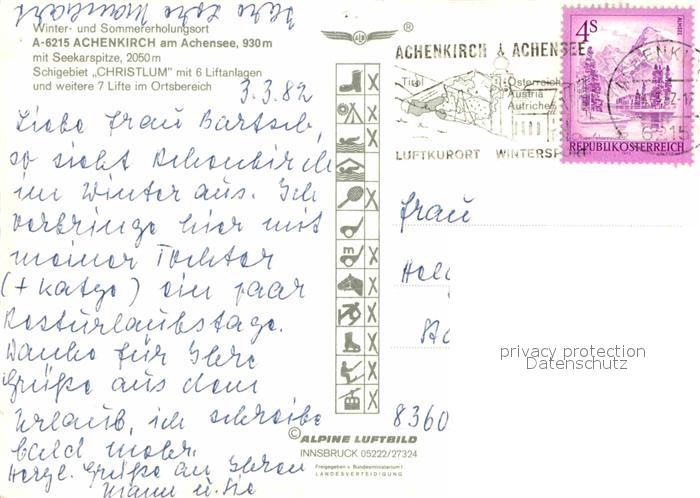 Winter- und Sommererholungsort
A-6215 ACHENKIRCH am Achensee, 930 m
mit Seekarspitze, 2050 m
Schigebiet „CHRISTLUM" mit 6 Liftanlagen
und weitere 7 Lifte im Ortsbereich
3.3.82
Liebe Frau Bartsch,
so sieht Achenkirch
im Winter aus. Ich
verbringe hier mit
meiner Tochter
(+ Katze) ein paar
Resturlaubstage.
Danke für Ihre
Grüße aus dem
Urlaub, ich schreibe
bald mehr.
Herzl. Grüße an Ihren
Mann u. Sie
®
ACHENKIRCH A ACHENSEE
Tirol Österreich
Austria
Autriche
LUFTKURORT WINTERSPORT
4 S
ALMSEE
REPUBLIK ÖSTERREICH
6215
Frau
8360
privacy protection
Datenschutz
© ALPINE LUFTBILD
INNSBRUCK 05222/27324
Freigegeben v. Bundesministerium f.
LANDESVERTEIDIGUNG